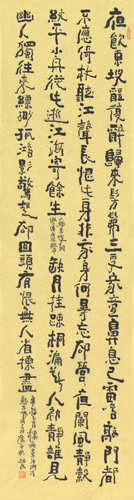 夜飲東坡醒復醉歸來髣髴三更家童鼻息已雷鳴敲門都
不應倚杖聽江聲長恨此身非我有何時忘却營營夜闌風靜縠
紋平小舟從此逝江海寄餘生
缺月挂疏桐漏斷人初靜誰見
幽人獨往來縹緲孤鴻影驚起却回頭有恨無人省揀盡